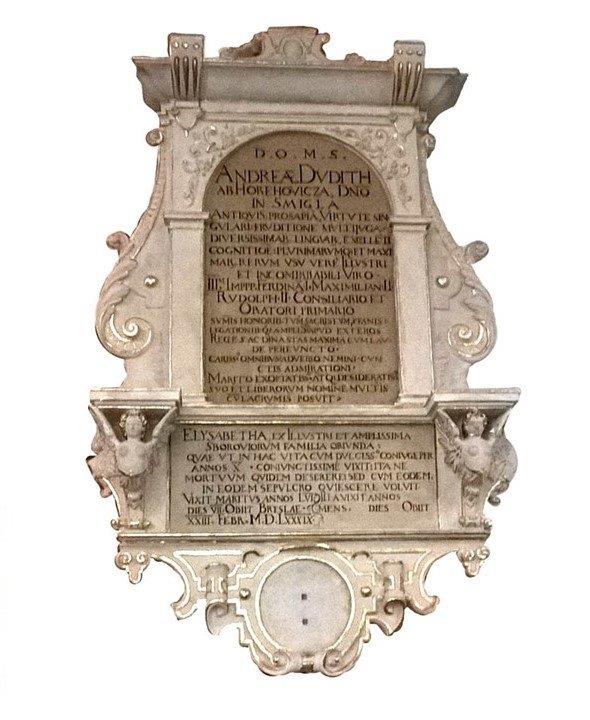 D. O. M. S.
ANDREÆ DVDITH
AB HOREHOVICZA, DNO
IN SMIGLA
ANTIQVIS: PROSAPIA, VIRTVTE SIN
GVLARI: ERVDITIONE MVLTIIVGA:
DIVERSISSIMAR LINGVAR, EXCELLETI
COGNITIOE: PLVRIMARVMQ; ET MAXI
MAR RERVM VSV VERE ILLVSTRI
ET INCOMPARABILI VIRO
IMPP. FERDINA I. MAXIMILIAN II
RVDOLPH II CONSILIARIO ET
ORATORI PRIMARIO
SVMIS HONORIB
LEGATIONIB AMPLISS APVD EXTEROS
REGES AC DINASTAS MAXIMA CVM LAV
DE PERFVNCTO
CARISS OMNIBVS ADVERSO NEMINI CVN
CTIS ADMIRATIONI
MARITO EXOPTATISS ATQ DESIDERATISS
SVO ET LIBERORVM NOMINE MVLTIS
CV LACRVMIS POSVIT
ELYSABETHA, EX ILLVSTRI ET AMPLISSIMA
SBOROVIORVM FAMILIA ORIVNDA;
QVAE VT IN HAC VITA CVM DVLCISS CONIVGE PER
ANNOS X CONIVNCTISSIME VIXIT: ITA NE
MORTVVM QVIDEM DESERERE SED CVM EODEM
IN EODEM SEPVLCRO QVIESCERE VOLVIT
VIXIT MARITVS ANNOS VIXIT ANNOS
DIES VII OBIIT BRESLAE MENS. DIES OBIIT
XXIII. FEBR. M.D.LXXXIX